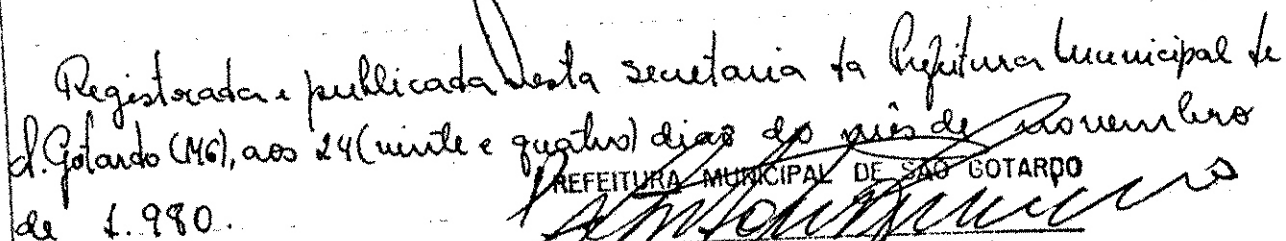 Registrada e publicada nesta secretaria da Prefeitura Municipal de
S. Gotardo (MG), aos 24 (vinte e quatro) dias do mês de novembro
PREFEITURA MUNICIPAL DE SÃO GOTARDO
de 1.980.